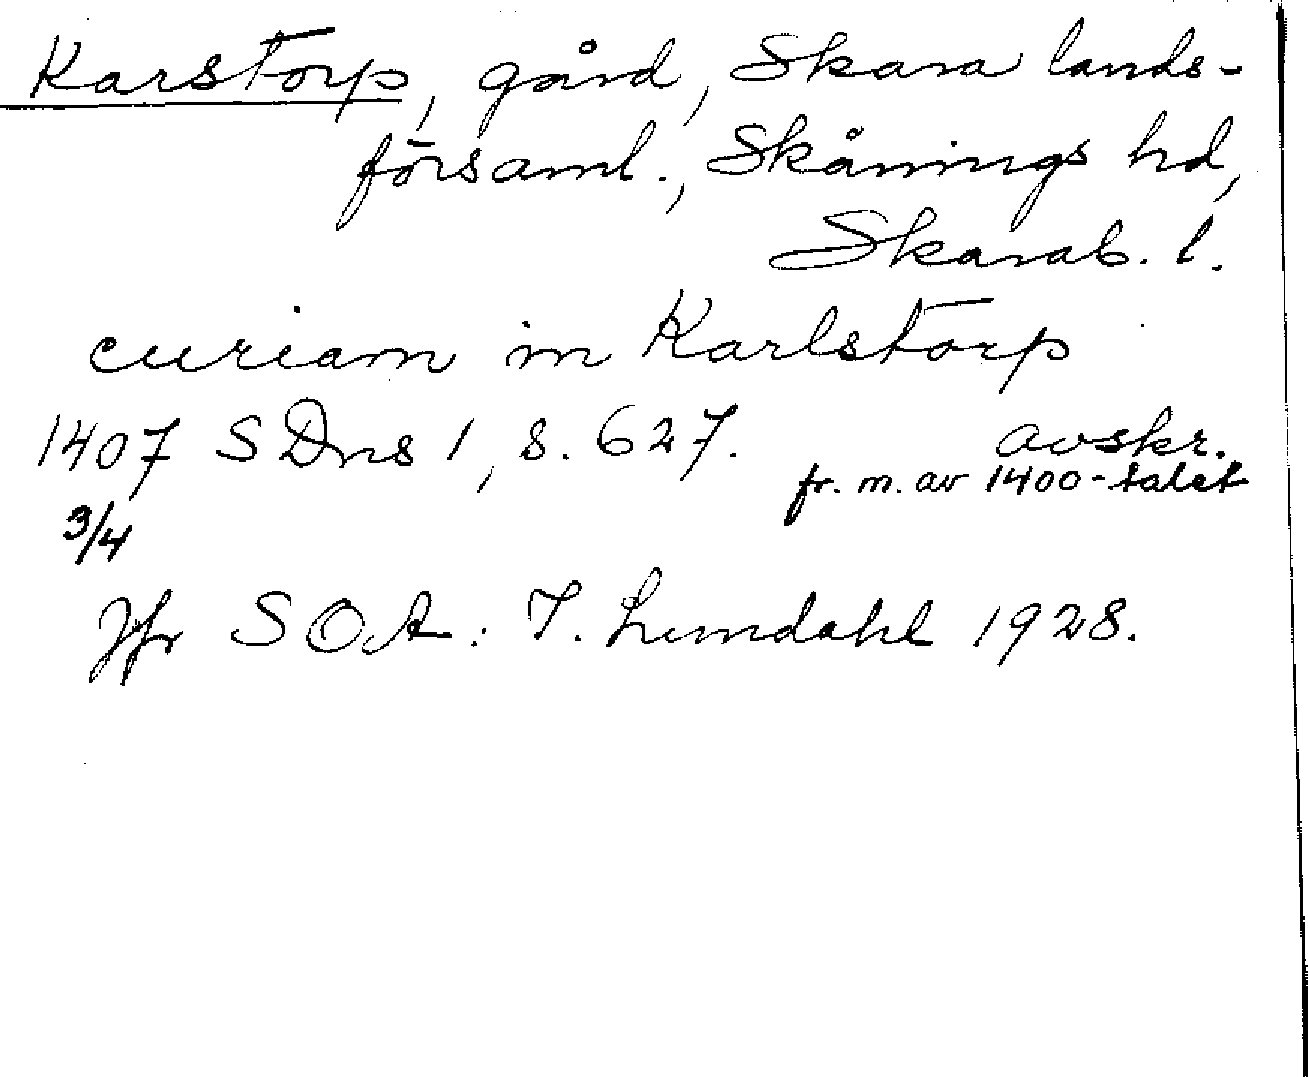 Karstorp, gård, Skara lands-
församl., Skånings hd,
Skarab. l.
curiam in Karlstorp
1407 SDns 1, s. 627. avskr.
fr. m. av 1400-talet
3/4
Jfr SOA: I. Lundahl 1928.